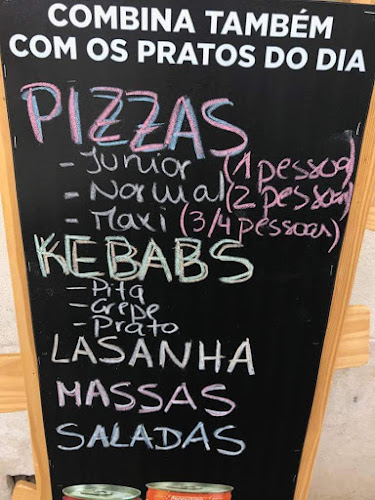 COMBINA TAMBÉM
COM OS PRATOS DO DIA
PIZZAS
- Junior (1 pessoa)
- Normal (2 pessoas)
- Maxi (3/4 pessoas)
KEBABS
- Pita
- Crepe
- Prato
LASANHA
MASSAS
SALADAS